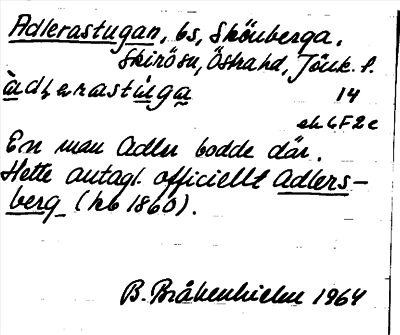 Adlerastugan, bs, Skönberga,
Skirö sn, Östra hd, Jönk. l.
àdlerastúga 14
ek 6F2c
En man Adler bodde där.
Hette antagl. officiellt Adlers-
berg (hb 1860).
B. Bråkenhielm 1964